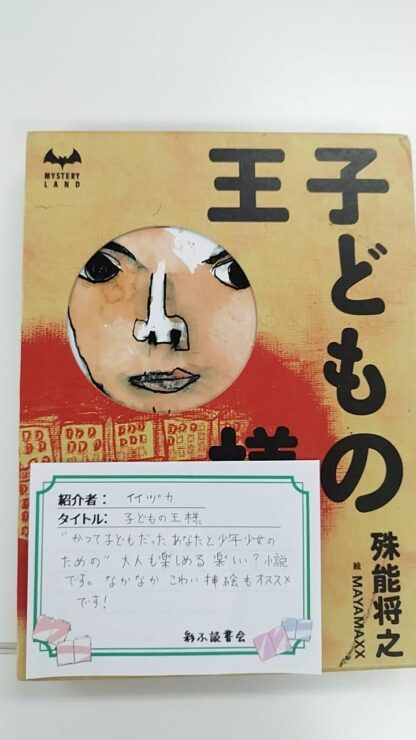 MYSTERY
LAND
子どもの
王様
殊能将之
絵 MAYAMAXX
紹介者： イイヅカ
タイトル： 子どもの王様
"かつて子どもだったあなたと少年少女の
ための" 大人も楽しめる 楽しい？小説
です。なかなか こわい 挿絵もオススメ
です！
彩ふ読書会